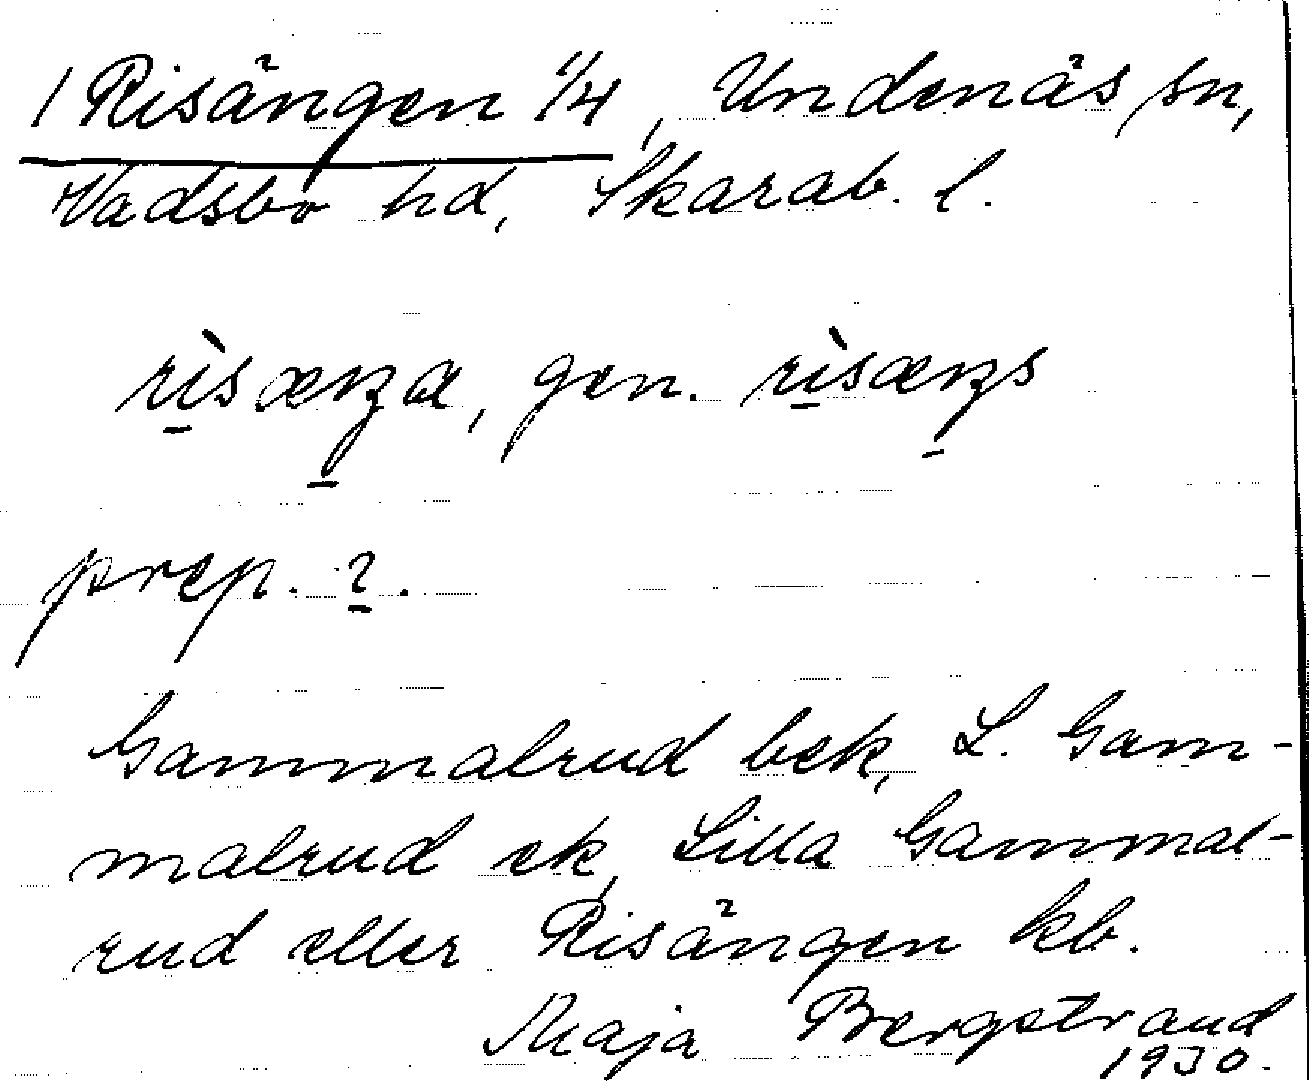 1 Risängen 1/4, Undenäs sn,
Vadsbo hd, Skarab. l.
rìsæŋa, gen. rìsæŋs
prep. ?.
Gammalrud bek, L. Gam-
malrud ek, Lilla Gammal-
rud eller Risängen kb.
Maja Bergstrand
1930.